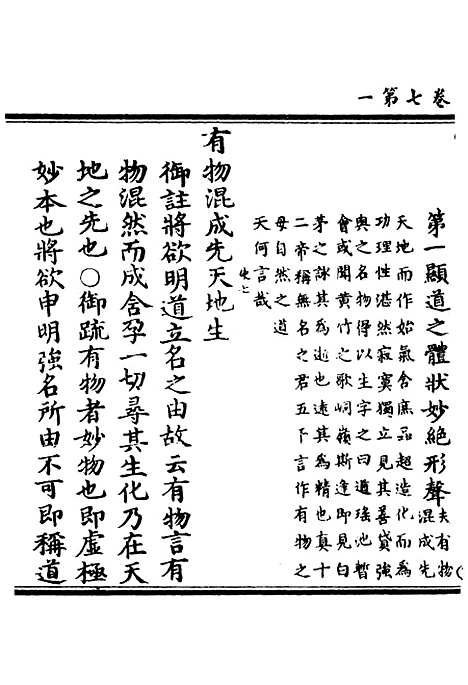 卷七第一
第一顯道之體狀妙絕形聲夫有物
混成先
天地而作始氣含庶品超造化而為
功理性湛然寂寞獨立見其善貸強
輿之名物得以生字之曰道瑤池暫
會或聞黃竹之歌峒嶺斯逢即見白
茅之詠其為逝也遠其為精也真十
二帝稱無名之君五千言作有物之
母自然之道
天何言哉
有物混成先天地生
御註將欲明道立名之由故云有物言有
物混然而成含孕一切尋其生化乃在天
地之先也○御疏有物者妙物也即虛極
妙本也將欲申明強名所由不可即稱道